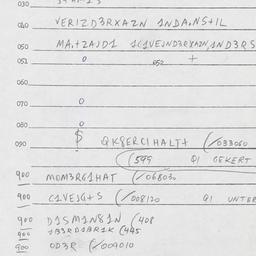 030
040 VERIZD3RXAZN 1NDA.NS+IL
050 MA.+ZAJD1 1C1VEJND3RXAZN,1ND3RS
051 0 052 +
060
070 0
080 0
090 $ QK8ERC1HALT+ (/033060
(599 Q1 GEKERT
900 MOM3RG1HAT (/068030
900 C1VEJG+S (/008120 Q1 UNTER
900 D1SM1N81N (408
900 (445
900 OD3R (/009010